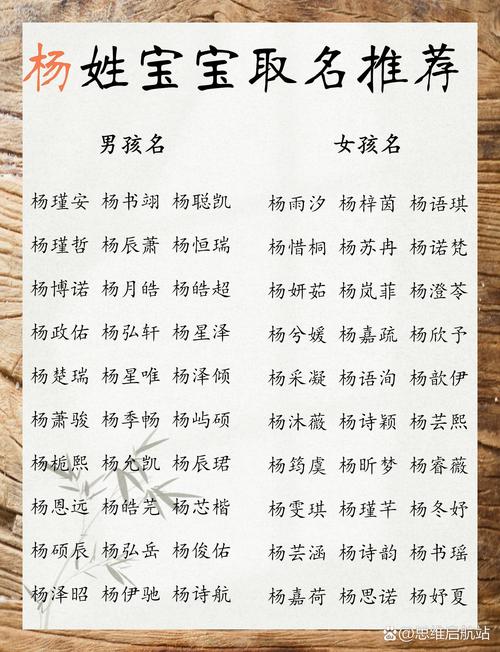 杨姓宝宝取名推荐
男孩名
杨瑾安 杨书翊 杨聪凯
杨瑾哲 杨辰萧 杨恒瑞
杨博诺 杨月皓 杨皓超
杨政佑 杨弘轩 杨星泽
杨楚瑞 杨星唯 杨泽倾
杨萧骏 杨季畅 杨屿硕
杨栀熙 杨允凯 杨辰珺
杨恩远 杨皓芫 杨芯楷
杨硕辰 杨弘岳 杨俊佑
杨泽昭 杨伊驰 杨诗航
女孩名
杨雨汐 杨梓茵 杨语琪
杨惜桐 杨苏冉 杨诺梵
杨妍茹 杨岚菲 杨澄苓
杨兮媛 杨嘉疏 杨欣予
杨采凝 杨语洵 杨歆伊
杨沐薇 杨诗颖 杨芸熙
杨筠虞 杨昕梦 杨睿薇
杨雯琪 杨瑾芊 杨冬妤
杨芸涵 杨诗韵 杨书瑶
杨嘉荷 杨思诺 杨妤夏
思维启航站